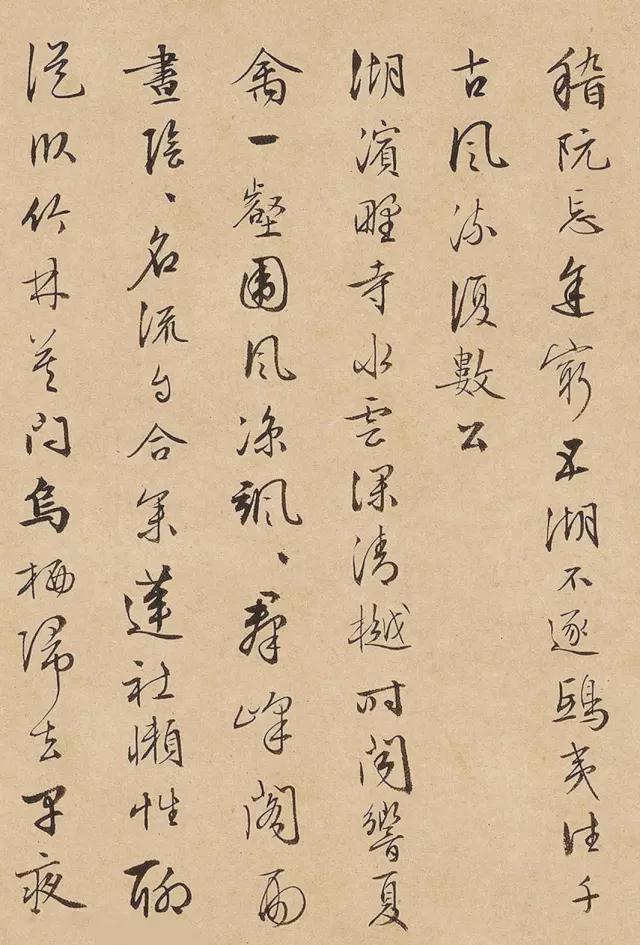 稽阮忘年窮五湖不逐鴟夷往千
古風流復數公
湖濱野寺水雲深清樾時聞響夏
禽一壑團風涼颯、群峰閣雨
晝陰、名流自合參蓮社懶性聊
從竹林莫問烏棲歸去早夜